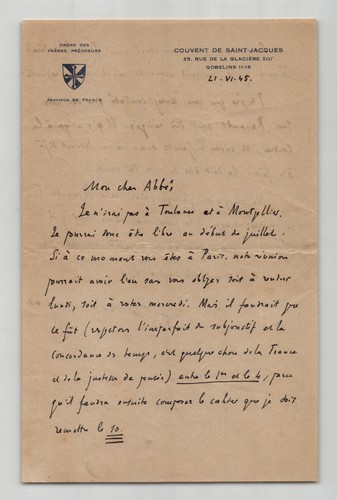 ORDRE DES
FRÈRES PRÊCHEURS
PROVINCE DE FRANCE
COUVENT DE SAINT-JACQUES
35, RUE DE LA GLACIÈRE XIIIᵉ
GOBELINS 11-15
21.VI.45.
Mon cher Abbé,
Je n'irai pas à Toulouse et à Montpellier.
Je pourrai donc être libre au début de juillet.
Si à ce moment vous êtes à Paris, notre réunion
pourrait avoir lieu sans vous obliger soit à rester
lundi, soit à rester mercredi. Mais il faudrait que
ce fût (rejetons l'imparfait du subjonctif et la
concordance des temps, c'est quelque chose de la France
et de la justesse de pensée) entre le 1er et le 4, parce
qu'il faudra ensuite composer le cahier que je dois
remettre le 10.